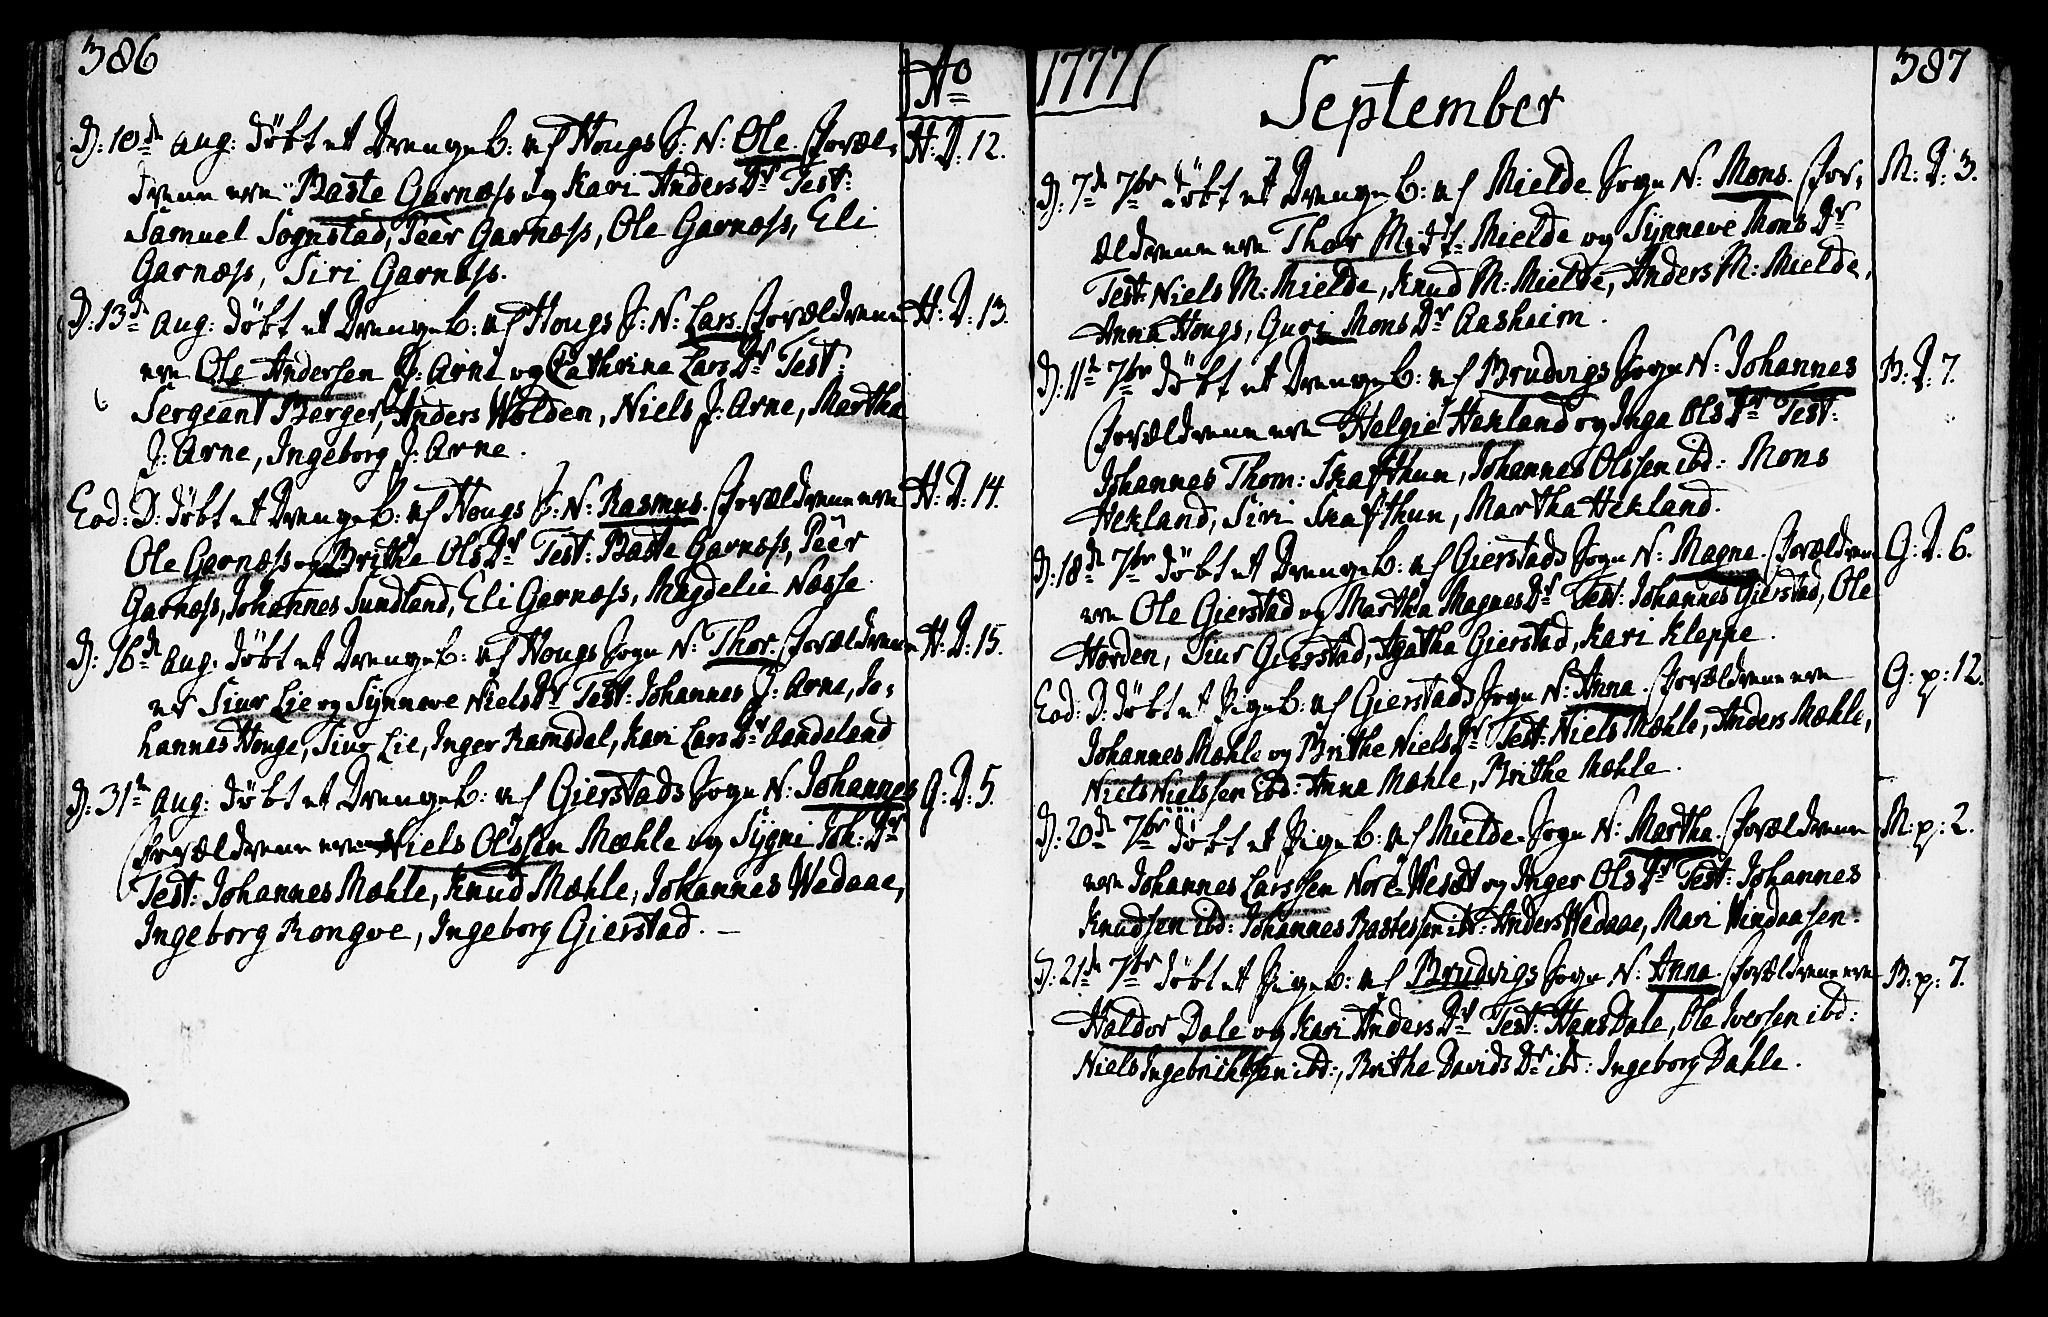 386
Ao
D: 10de Aug: döbt et Drengeb: af Hougs S: N: Ole. Foræl-
H: D: 12.
drene ere Baste Garnæss og Kari Anders Dr Test:
Samuel Sognstad, Peer Garnæss, Ole Garnæss, Eli
Garnæss, Siri Garnæss.
D: 13de Aug: döbt et Drengeb: af Hougs S: N: Lars. Forældrene
H: D: 13.
ere Ole Andersen J: Arne og Cathrina Lars Dr Test:
Sergeant Berger, Anders Wolden, Niels J: Arne, Martha
J: Arne, Ingeborg J: Arne.
Eod: D: döbt et Drengeb: af Hougs S: N: Rasmus. Forældrene ere
H: D: 14.
Ole Garnæss og Brithe Ols Dr Test: Baste Garnæss, Peer
Garnæss, Johannes Sundland, Eli Garnæss, Magdelie Næsse.
D: 16de Aug: döbt et Drengeb: af Hougs Sogn N: Thor. Forældrene
H: D: 15.
er Siur Lie og Synneve Niels Dr Test: Johannes J: Arne, Jo-
hannes Houge, Siur Lie, Inger Ramsdal, Kari Lars Dr Aandeland
D: 31te Aug: döbt et Drengeb: af Gierstads Sogn N: Johannes
G: D: 5.
Forældrene ere Niels Olssen Mæhle og Sygni Joh: Dr
Test: Johannes Mæhle, Knud Mæhle, Johannes Wedaae,
Ingeborg Rongve, Ingeborg Gierstad. –
1777
387
September
D: 7de 7br döbt et Drengeb: af Mielde Sogn N: Mons. For-
M: D: 3.
ældrene ere Thor Midt-Mielde og Synneve Mons Dr
Test: Niels M: Mielde, Knud M: Mielde, Anders M: Mielde,
Anna Hougs, Guri Mons Dr Aasheim.
D: 11te 7br döbt et Drengeb: af Brudvigs Sogn N: Johannes
B: D: 7.
Forældrene ere Helgie Hekland og Inga Ols Dr Test:
Johannes Thom: Skafthun, Johannes Olssen ibd: Mons
Hekland, Siri Skafthun, Martha Hekland.
D: 18de 7br döbt et Drengeb: af Gierstads Sogn N: Magne. Forældrene
G: D: 6.
ere Ole Gierstad og Martha Magnes Dr Test: Johannes Gierstad, Ole
Horden, Siur Gierstad, Agatha Gierstad, Kari Kleppe.
Eod: D: döbt et Pigeb: af Gierstads Sogn N: Anna. Forældrene ere
G: p: 12.
Johannes Mæhle og Brithe Niels Dr Test: Niels Mæhle, Anders Mæhle,
Niels Nielssen ibd: Anna Mæhle, Brithe Mæhle.
D: 20de 7br döbt et Pigeb: af Mielde Sogn N: Martha. Forældrene
M: p: 2.
ere Johannes Larssen Nore-Wesæt og Inger Ols Dr Test: Johannes
Knudsen ibd: Johannes Bastessen ibd: Anders Wedaae, Mari Windaasen.
D: 21de 7br döbt et Pigeb: af Brudvigs Sogn N: Anna. Forældrene ere
B: p: 7.
Haldor Dale og Kari Anders Dr Test: Hans Dale, Ole Iversen ibd:
Niels Ingebrichtsen ibd:, Brithe Davids Dr ibd: Ingeborg Dahle.